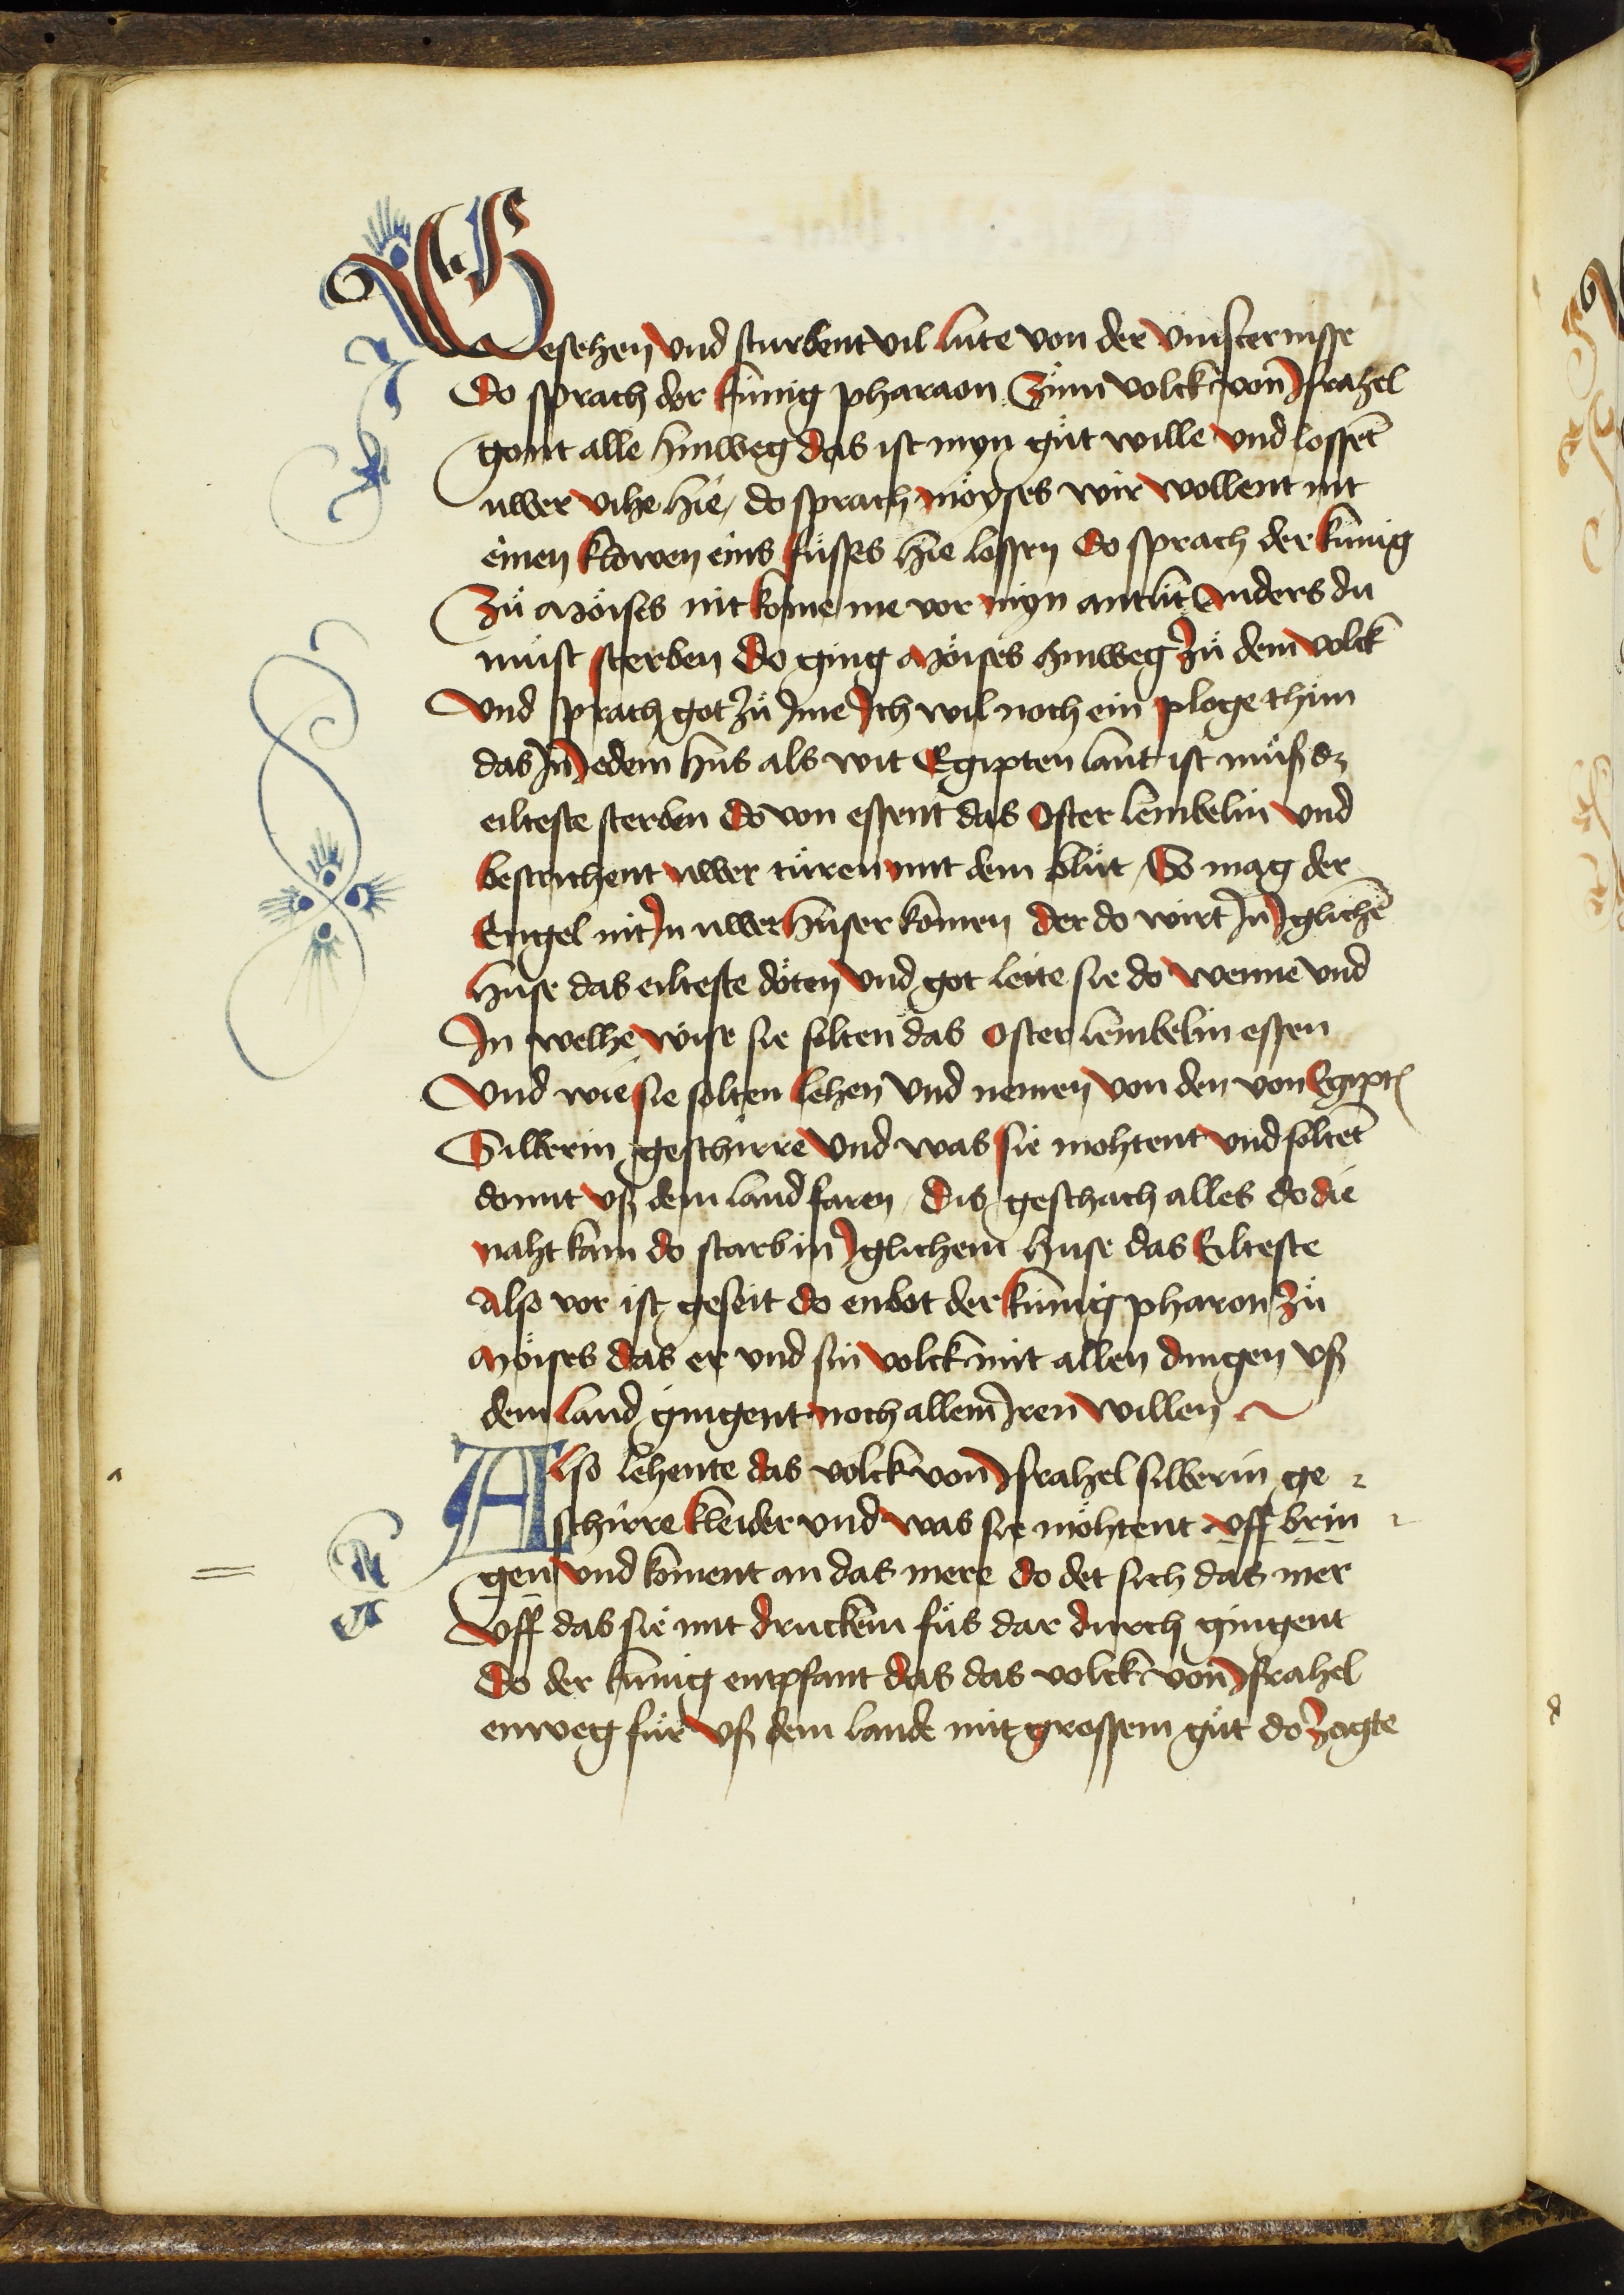 Gesehen vnd sturbent vil lute von der vinsternisse
Do sprach der künig pharaon Zům volck von Jsrahel
gont alle hinweg das ist myn gůt wille vnd lossēt
uwer vihe hie / do sprach möyses wir wollent nit
einen klowen eins fůsses hie lossen Do sprach der künig
Zů Möises nit kome me vor myn antlit Anders du
můst sterben Do ging Möises hinweg zů dem volck
Vnd sprach got zů Jme Jch wil noch ein ploge thůn
das Jn Jedem hus als wit Egipten lant ist můß dz
eilteste sterben do von essent das Oster lembelin vnd
bestrichent uwer türen mit dem blůt / So mag der
Engel nit Jn uwer hüser komen der do wirt Jn Jglichē
huse das eilteste döten vnd got leite sie do wenne vnd
Jn welhe wise sie solten das Oster lembelin essen
Vnd wie sie solten lehen vnd nemen von den von Egipten
Silberin geschirre vnd was sie mohtent vnd soltēt
domit vß dem land faren / Dis geschach alles do die
naht kam do starb in Jglichem huse das Eilteste
Also vor ist geseit do enbot der künig pharon zů
Möises das er vnd sin volck mit allen dingen vß
dem land gingent noch allem Jren willen
Also lehente das volck von Jsrahel silberin ge
schirre kleider vnd was sie möhtent vff brin
gen vnd koment an das mere do det sich das mer
Vff das sie mit druckem fůs dar durch gingent
Do der künig entpfant das das volck von Jsrahel
enweg fůr vß dem lande mit grossem gůt do zogte